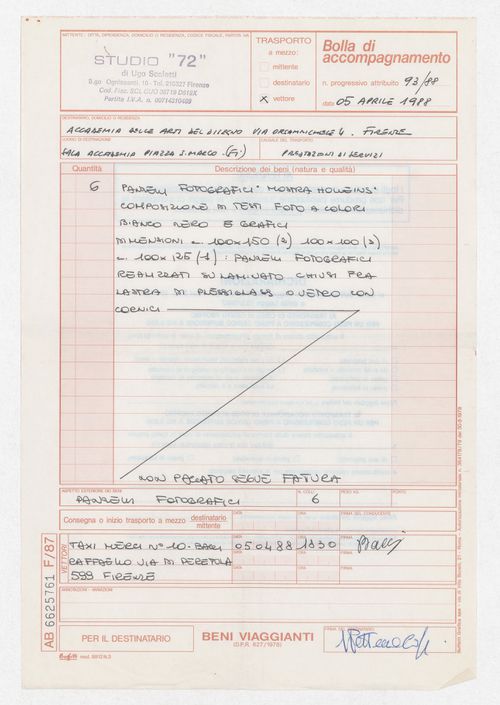 MITTENTE: DITTA, DIPENDENZA, DOMICILIO O RESIDENZA, CODICE FISCALE, PARTITA IVA
STUDIO "72"
di Ugo Scoletti
B.go Ognissanti, 10 - Tel. 210327 Firenze
Partita I.V.A. n. 00714310489
TRASPORTO
a mezzo:
mittente
destinatario
X vettore
Bolla di
accompagnamento
n. progressivo attribuito 93/88
data 05 APRILE 1988
DESTINATARIO, DOMICILIO O RESIDENZA
ACCADEMIA DELLE ARTI DEL DISEGNO VIA ORCANMICHELE 4. FIRENZE
LUOGO DI DESTINAZIONE
CAUSALE DEL TRASPORTO
SALA ACCADEMIA PIAZZA S. MARCO. (FI)
PRESTAZIONI DI SERVIZI
Quantità
Descrizione dei beni (natura e qualità)
6 PANNELLI FOTOGRAFICI "MOSTRA HOLLEINS"
COMPOSIZIONE DI TESTI FOTO A COLORI
BIANCO NERO E GRAFICI
DIMENSIONI c. 100x150 (2) 100x100 (3)
c. 100x125 (1) : PANNELLI FOTOGRAFICI
REALIZZATI SU LAMINATO CHIUSI FRA
LASTRA DI PLESSIGLASS O VETRO CON
CORNICI
NON PAGATO SEGUE FATURA
ASPETTO ESTERIORE DEI BENI
N. COLLI
PESO KG.
PORTO
PANNELLI FOTOGRAFICI 6
Consegna o inizio trasporto a mezzo
destinatario
mittente
DATA
ORA
FIRMA DEL CONDUCENTE
VETTORI
TAXI MERCI N° 10 - BACI
05 04 88 1830
RAFFAELLO VIA DI PERETOLA
599 FIRENZE
ANNOTAZIONI - VARIAZIONI
AB 6625761 F/87
PER IL DESTINATARIO
BENI VIAGGIANTI
(D.P.R. 627/1978)
Buffetti mod. 6912 N.3